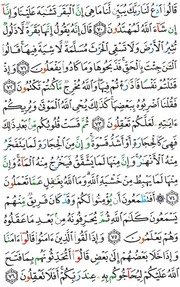 قَالُوا۟ ٱدْعُ لَنَا رَبَّكَ يُبَيِّن لَّنَا مَا هِىَ إِنَّ ٱلْبَقَرَ تَشَٰبَهَ عَلَيْنَا وَإِنَّآ
إِن شَآءَ ٱللَّهُ لَمُهْتَدُونَ ٧٠ قَالَ إِنَّهُۥ يَقُولُ إِنَّهَا بَقَرَةٌ لَّا ذَلُولٌ
تُثِيرُ ٱلْأَرْضَ وَلَا تَسْقِى ٱلْحَرْثَ مُسَلَّمَةٌ لَّا شِيَةَ فِيهَا قَالُوا۟
ٱلْـَٰٔنَ جِئْتَ بِٱلْحَقِّ فَذَبَحُوهَا وَمَا كَادُوا۟ يَفْعَلُونَ ٧١
وَإِذْ قَتَلْتُمْ نَفْسًا فَٱدَّٰرَْٰٔتُمْ فِيهَا وَٱللَّهُ مُخْرِجٌ مَّا كُنتُمْ تَكْتُمُونَ ٧٢
فَقُلْنَا ٱضْرِبُوهُ بِبَعْضِهَا كَذَٰلِكَ يُحْىِ ٱللَّهُ ٱلْمَوْتَىٰ وَيُرِيكُمْ
ءَايَٰتِهِۦ لَعَلَّكُمْ تَعْقِلُونَ ٧٣ ثُمَّ قَسَتْ قُلُوبُكُم مِّنۢ بَعْدِ ذَٰلِكَ
فَهِىَ كَٱلْحِجَارَةِ أَوْ أَشَدُّ قَسْوَةً وَإِنَّ مِنَ ٱلْحِجَارَةِ لَمَا يَتَفَجَّرُ
مِنْهُ ٱلْأَنْهَٰرُ وَإِنَّ مِنْهَا لَمَا يَشَّقَّقُ فَيَخْرُجُ مِنْهُ ٱلْمَآءُ وَإِنَّ
مِنْهَا لَمَا يَهْبِطُ مِنْ خَشْيَةِ ٱللَّهِ وَمَا ٱللَّهُ بِغَٰفِلٍ عَمَّا تَعْمَلُونَ
٧٤ أَفَتَطْمَعُونَ أَن يُؤْمِنُوا۟ لَكُمْ وَقَدْ كَانَ فَرِيقٌ مِّنْهُمْ
يَسْمَعُونَ كَلَٰمَ ٱللَّهِ ثُمَّ يُحَرِّفُونَهُۥ مِنۢ بَعْدِ مَا عَقَلُوهُ
وَهُمْ يَعْلَمُونَ ٧٥ وَإِذَا لَقُوا۟ ٱلَّذِينَ ءَامَنُوا۟ قَالُوٓا۟ ءَامَنَّا
وَإِذَا خَلَا بَعْضُهُمْ إِلَىٰ بَعْضٍ قَالُوٓا۟ أَتُحَدِّثُونَهُم بِمَا فَتَحَ
ٱللَّهُ عَلَيْكُمْ لِيُحَآجُّوكُم بِهِۦ عِندَ رَبِّكُمْ أَفَلَا تَعْقِلُونَ ٧٦